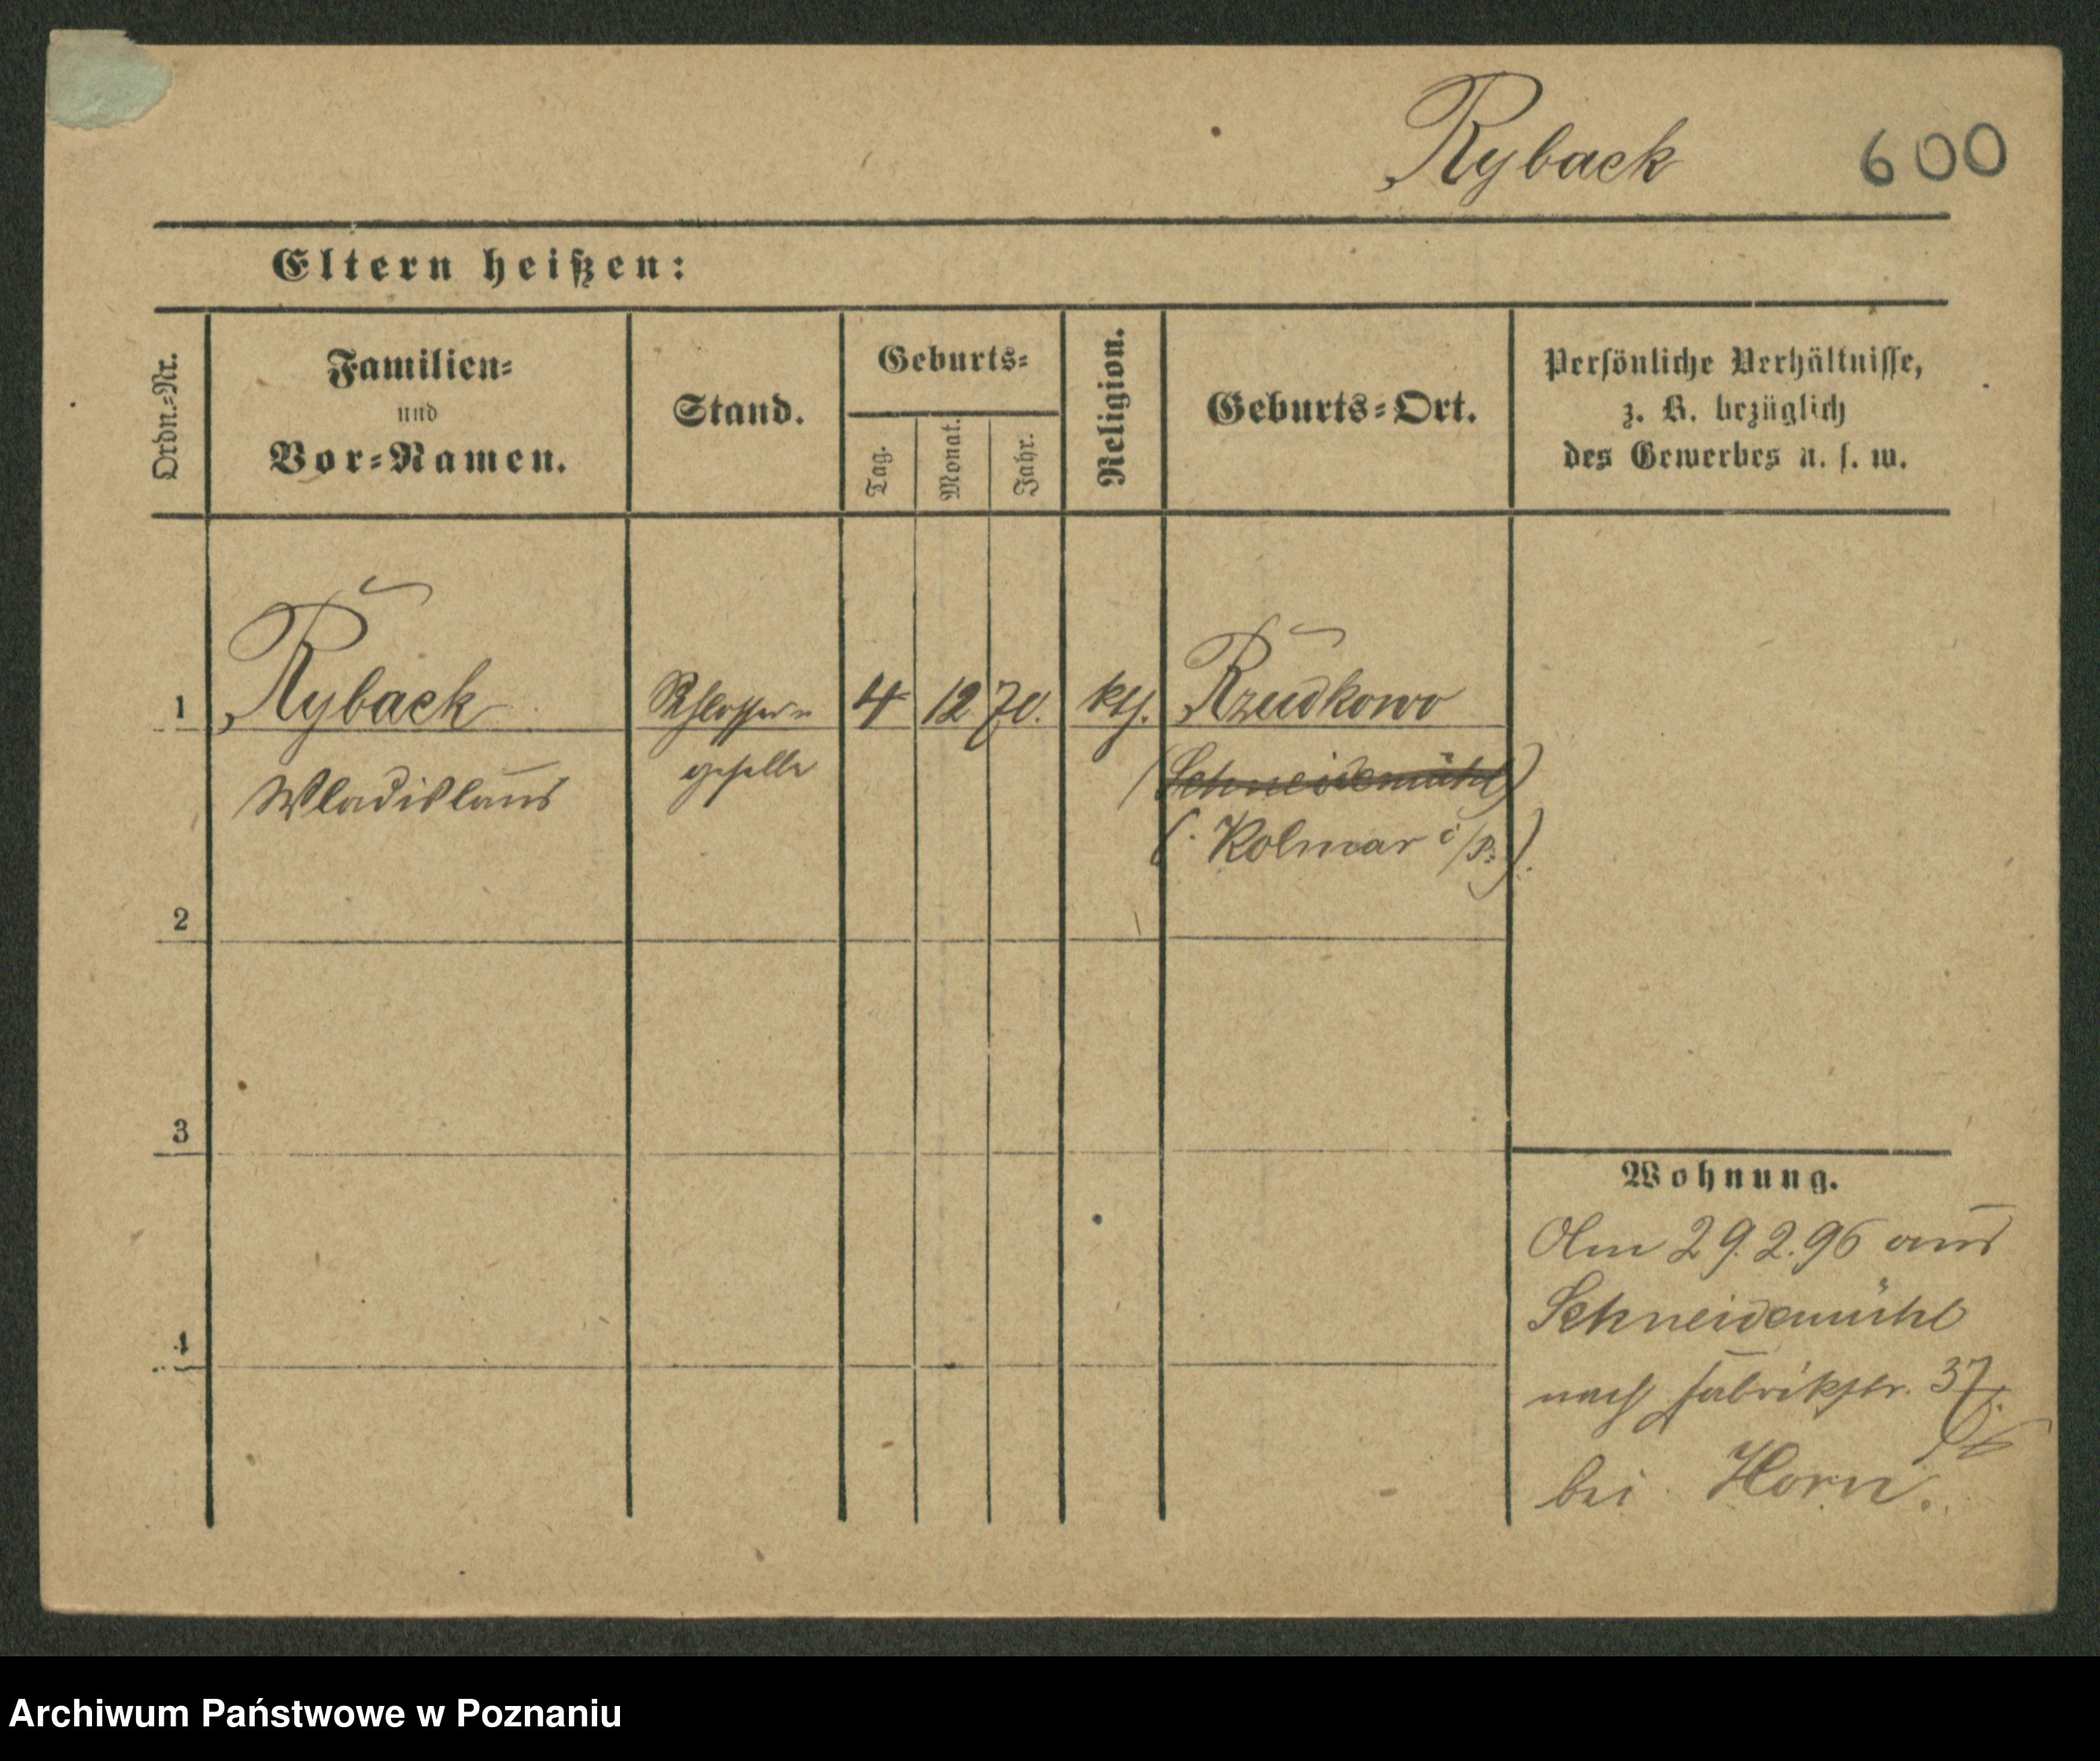 Ryback 600
Eltern heißen:
Ordn.-Nr.
Familien-
und
Vor-Namen.
Stand.
Geburts-
Tag.
Monat.
Jahr.
Religion.
Geburts-Ort.
Persönliche Verhältnisse,
z. B. bezüglich
des Gewerbes u. s. w.
1 Ryback Schlosser- 4 12 70. kth. Rzudkowo
Wladislaus geselle (Schneidemühl)
(Kolmar i/P.)
2
3
4
Wohnung.
Am 29.2.96 aus
Schneidemühl
nach Fabrikstr. 37.
bei Horn.
Archiwum Państwowe w Poznaniu